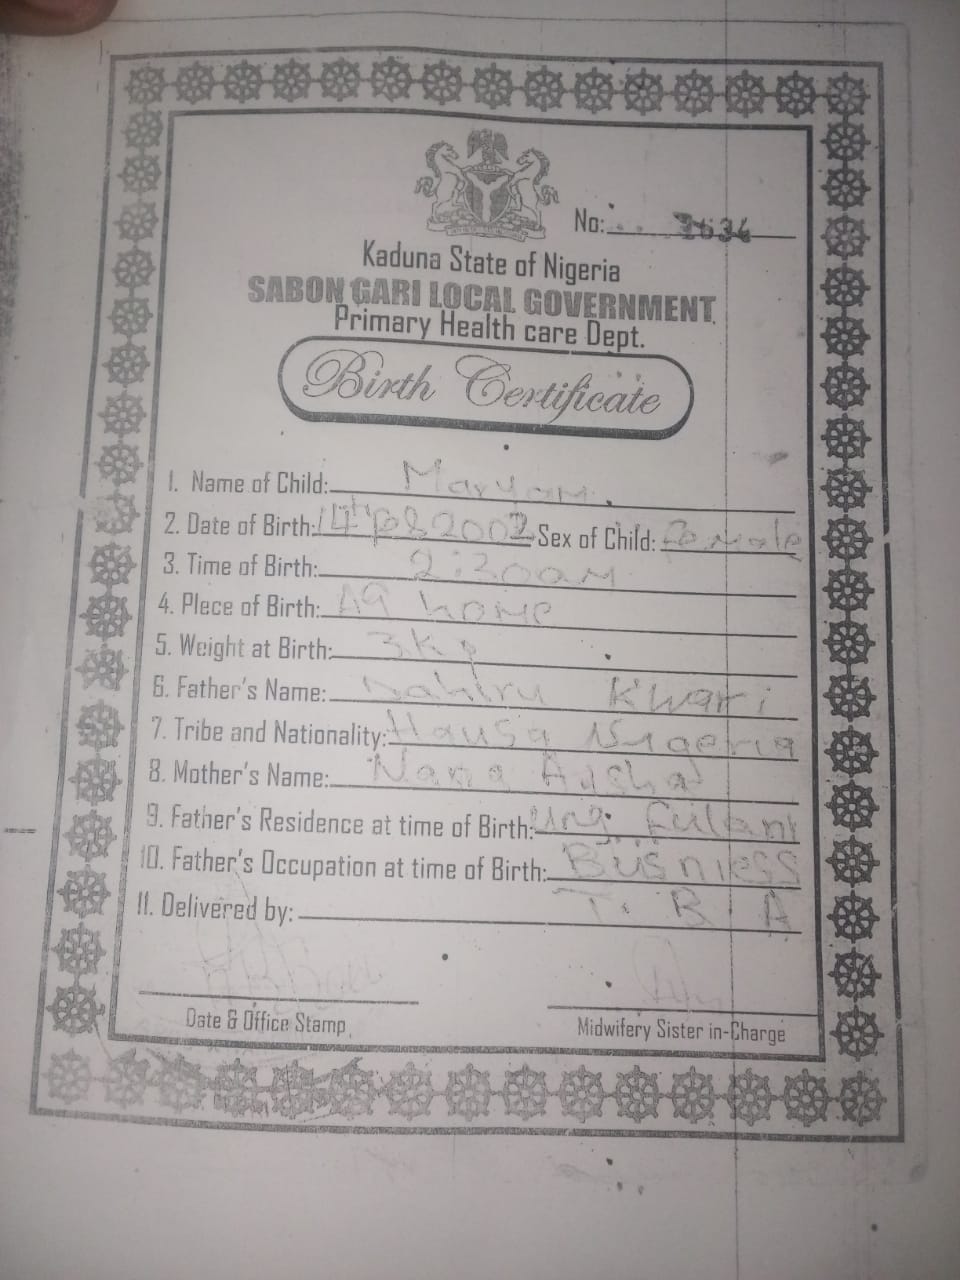 No: 2634
Kaduna State of Nigeria
SABON GARI LOCAL GOVERNMENT
Primary Health care Dept.
Birth Certificate
1. Name of Child: Maryam.
2. Date of Birth: 14th 2002 Sex of Child: Female
3. Time of Birth: 2:30am
4. Plece of Birth: home
5. Weight at Birth: 3kg
6. Father's Name: Kwari
7. Tribe and Nationality: Hausa Nigeria
8. Mother's Name: Nana
9. Father's Residence at time of Birth: Ung. Fulani
10. Father's Occupation at time of Birth: Busniess
11. Delivered by: T. B. A
Date & Office Stamp Midwifery Sister in-Charge